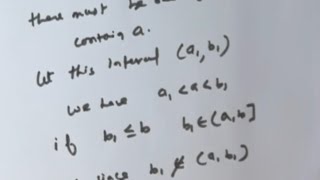 there must be
contain a.
let this interval (a₁, b₁)
we have a₁ < a < b₁
if b₁ ≤ b b₁ ∈ (a, b]
b₁ ∉ (a, b₁)